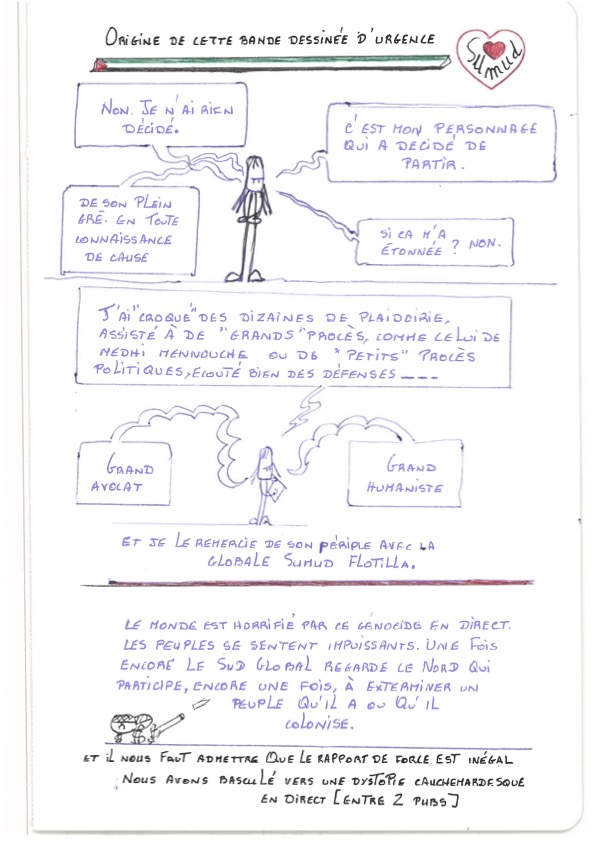 ORIGINE DE CETTE BANDE DESSINÉE D'URGENCE
Sumud
NON. JE N'AI RIEN
DÉCIDÉ.
C'EST MON PERSONNAGE
QUI A DÉCIDÉ DE
PARTIR.
DE SON PLEIN
GRÉ. EN TOUTE
CONNAISSANCE
DE CAUSE
SI CA M'A
ÉTONNÉE ? NON.
J'AI "CROQUÉ" DES DIZAINES DE PLAIDOIRIE,
ASSISTÉ À DE "GRANDS" PROCÈS, COMME CELUI DE
MEDHI MENNOUCHE OU DE "PETITS" PROCÈS
POLITIQUES, ECOUTÉ BIEN DES DÉFENSES ---
GRAND
AVOCAT
GRAND
HUMANISTE
ET JE LE REMERCIE DE SON PÉRIPLE AVEC LA
GLOBALE SUMUD FLOTILLA.
LE MONDE EST HORRIFIÉ PAR CE GÉNOCIDE EN DIRECT.
LES PEUPLES SE SENTENT IMPUISSANTS. UNE FOIS
ENCORE LE SUD GLOBAL REGARDE LE NORD QUI
PARTICIPE, ENCORE UNE FOIS, À EXTERMINER UN
PEUPLE QU'IL A OU QU'IL
COLONISE.
ET IL NOUS FAUT ADMETTRE QUE LE RAPPORT DE FORCE EST INÉGAL
NOUS AVONS BASCULÉ VERS UNE DYSTOPIE CAUCHEMARDESQUE
EN DIRECT [ENTRE 2 PUBS]